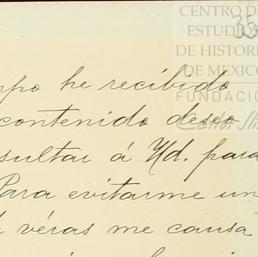 CENTRO D
35
ESTUD
DE HISTOR
DE MEXIC
FUNDACIO
Carlos Sli
po he recibido
contenido deseo
sultar á Ud. para
Para evitarme un
véras me causa